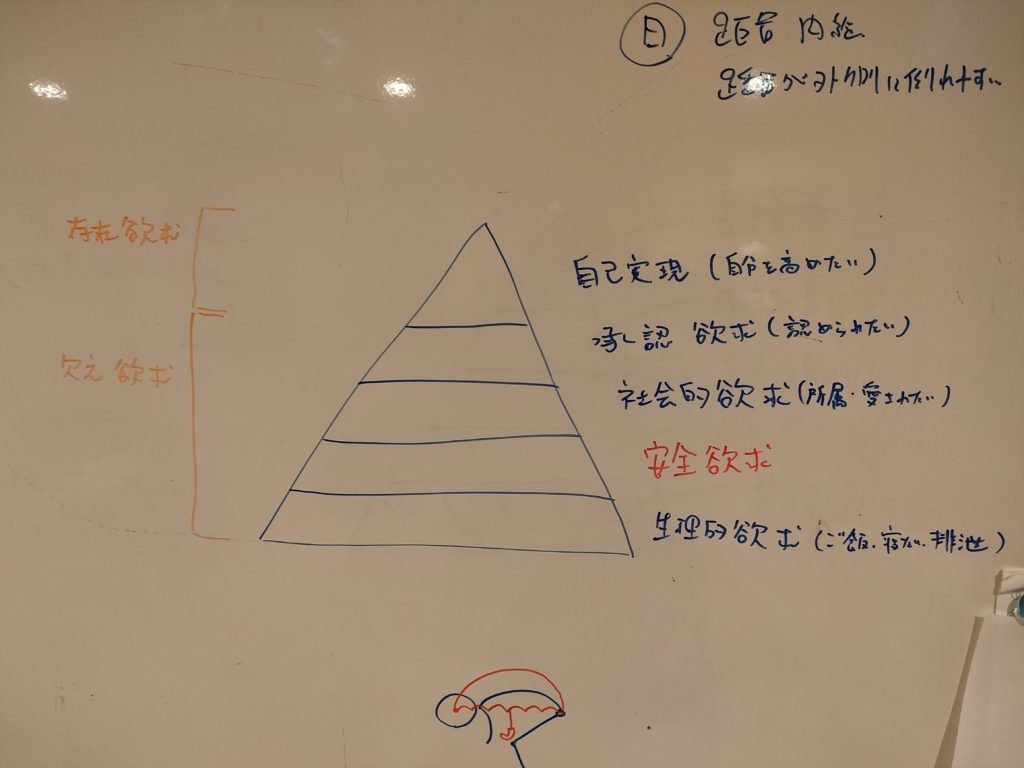 日 距骨 内
が外側に倒れやすい
自己実現 (自分を高めたい)
存在欲求
承認 欲求 (認められたい)
欠乏 欲求
社会的欲求 (所属・愛されたい)
安全欲求
生理的欲求 (ご飯・寝たい・排泄)